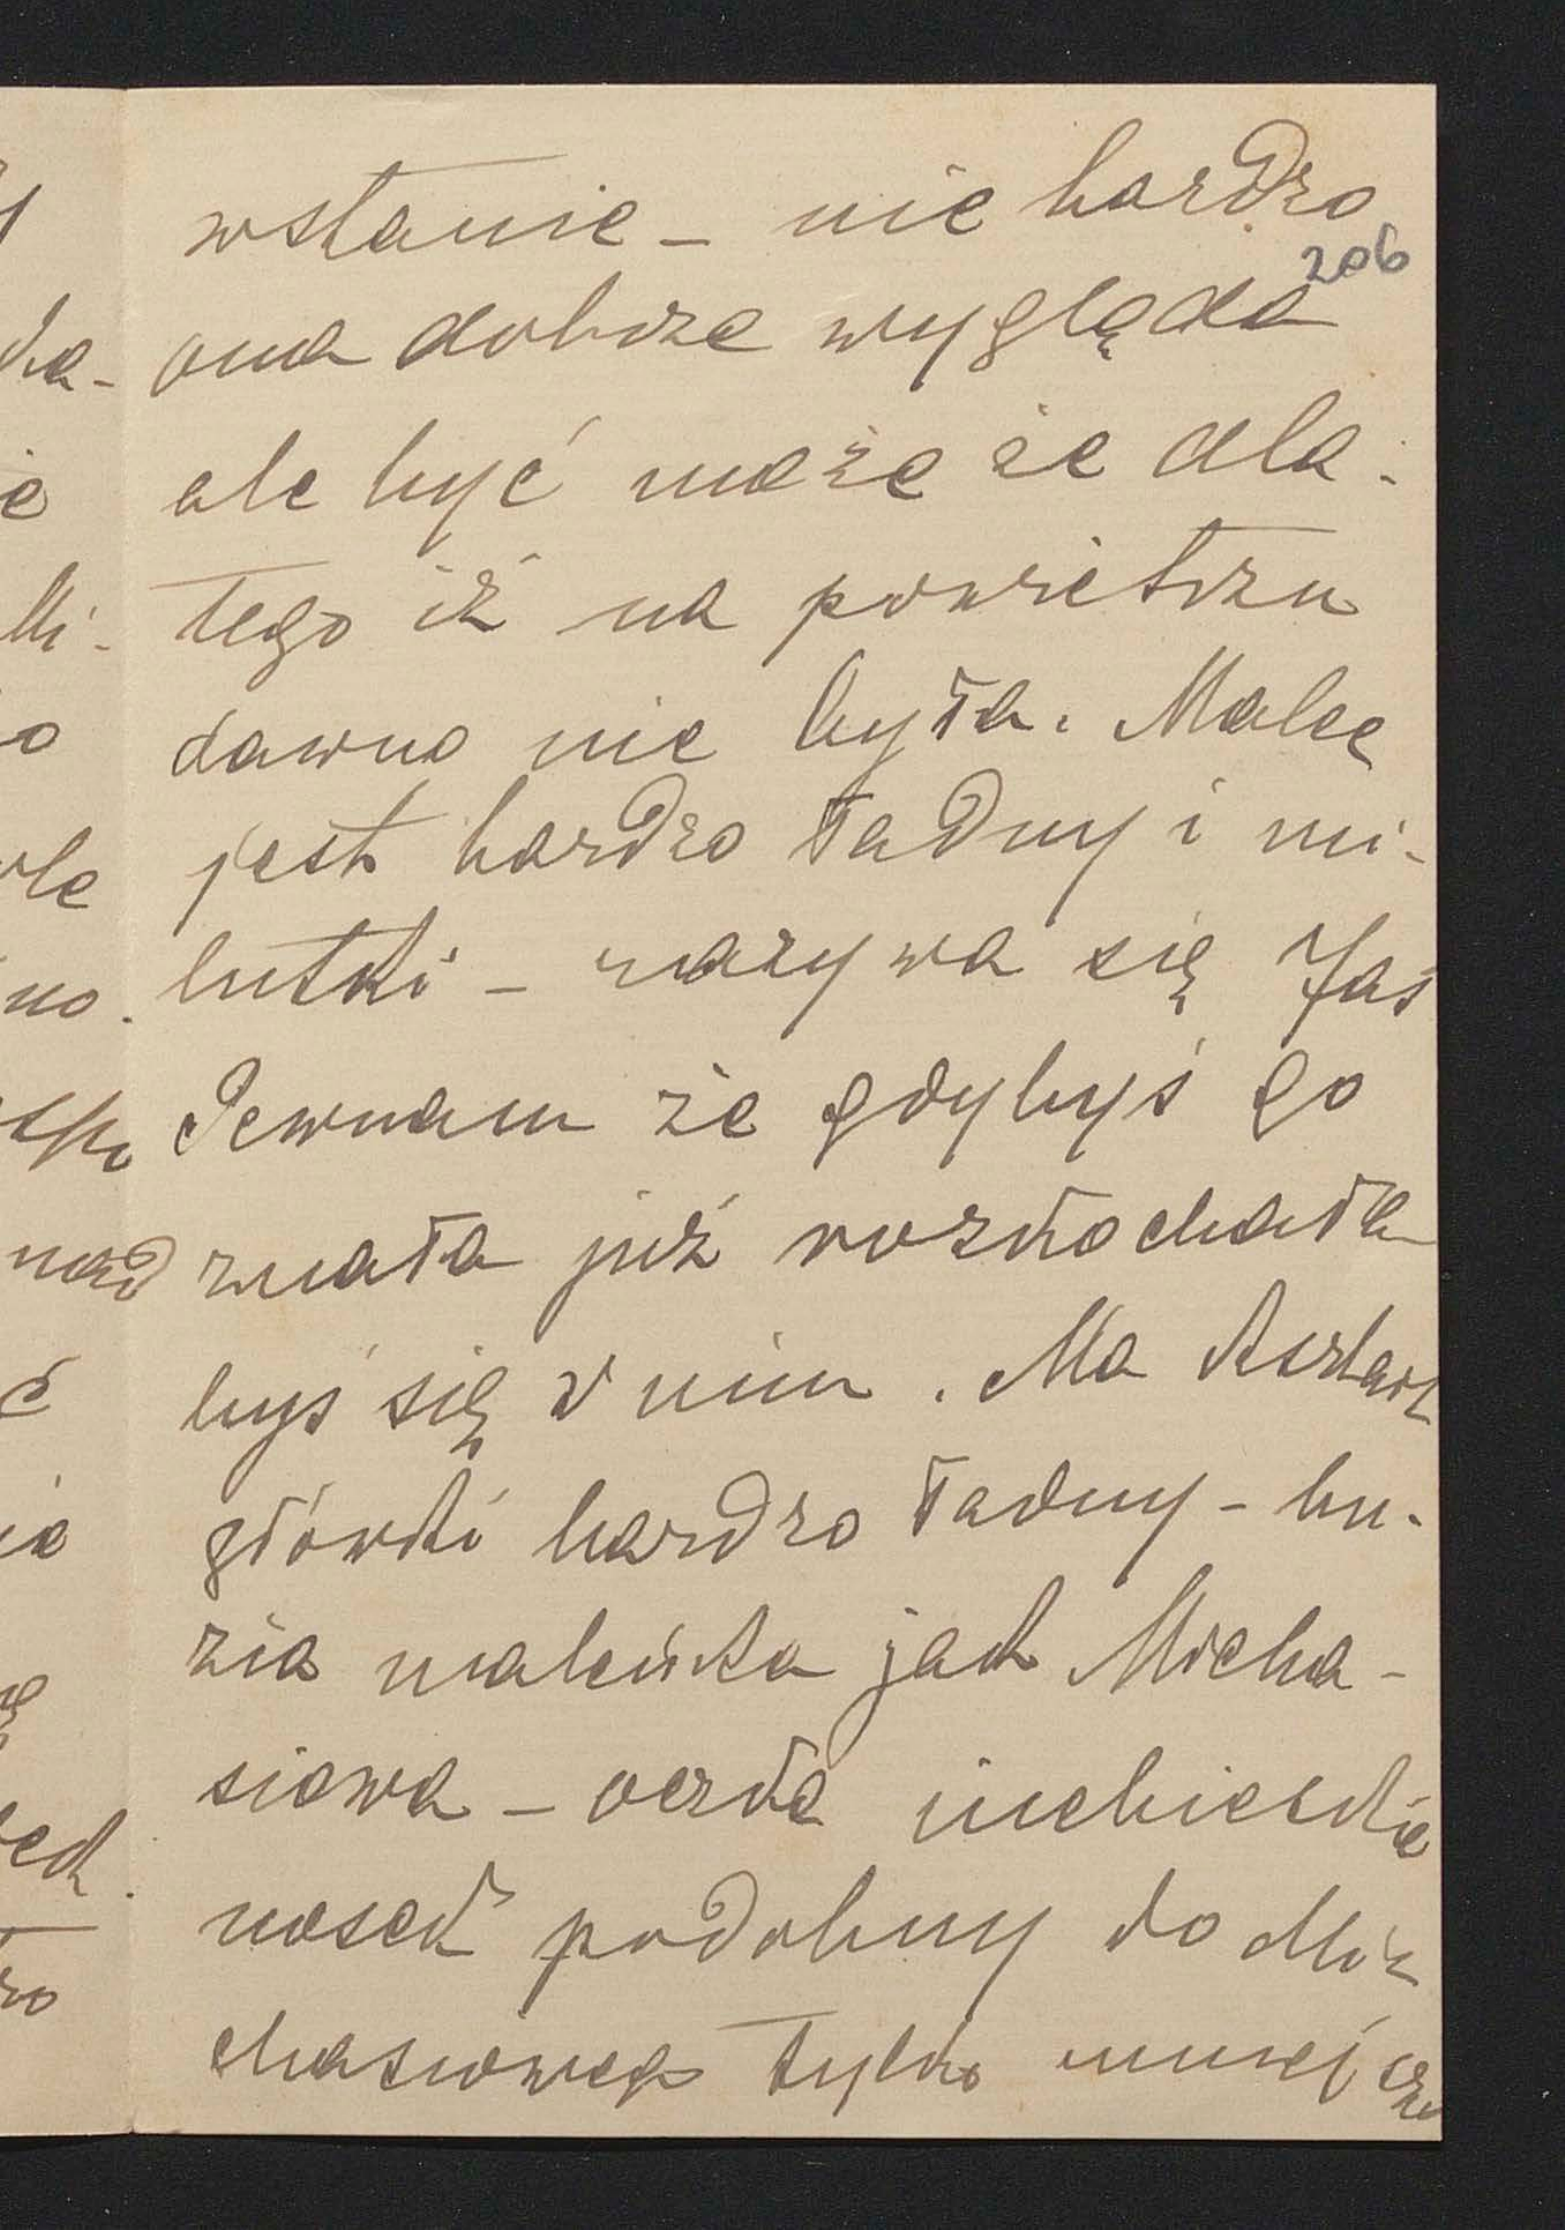 wstanie – nie bardzo
206
ona dobrze wygląda
ale być może że dla-
tego iż na powietrzu
dawno nie była. Malec
jest bardzo ładny i mi-
lutki – nazywa się Jaś
Pewnam że gdybyś go
znała już rozkochała
byś się w nim. Ma kształt
główki bardzo ładny – bu-
zia maleńka jak Micha-
siowa – oczka niebieskie
nosek podobny do Mi-
chasiowego tylko mniejszy